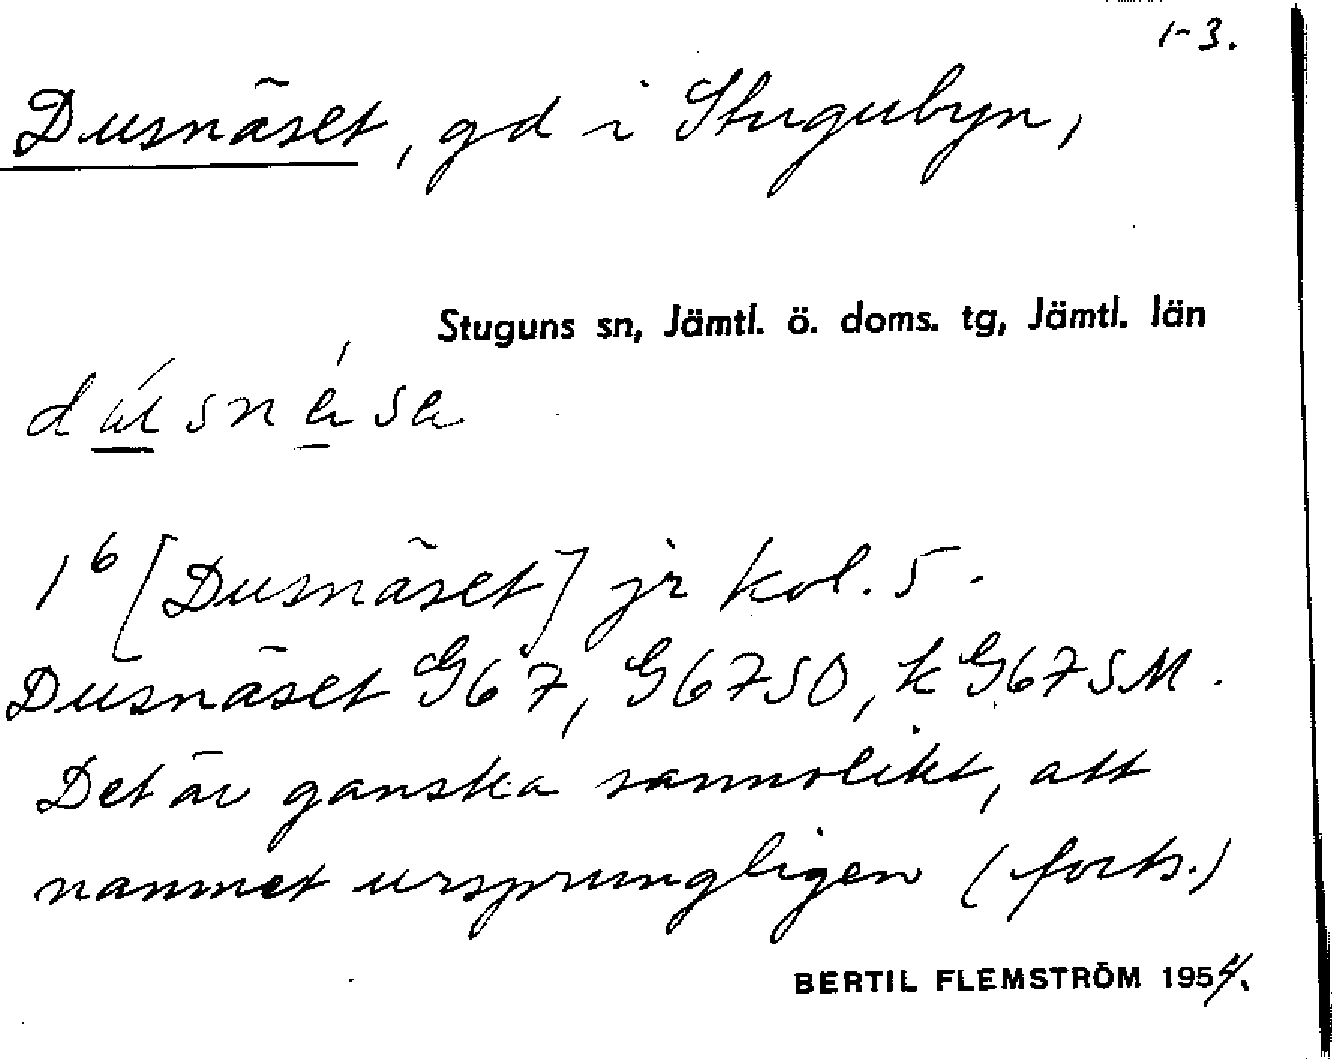 1-3.
Dusnäset, gd i Stugubyn,
Stuguns sn, Jämtl. ö. doms. tg, Jämtl. län
1⁶ [Dusnäset] jr kol. 5.
Dusnäset G67, G67SO, k G67SM.
Det är ganska sannolikt, att
namnet ursprungligen (forts.)
BERTIL FLEMSTRÖM 1954.